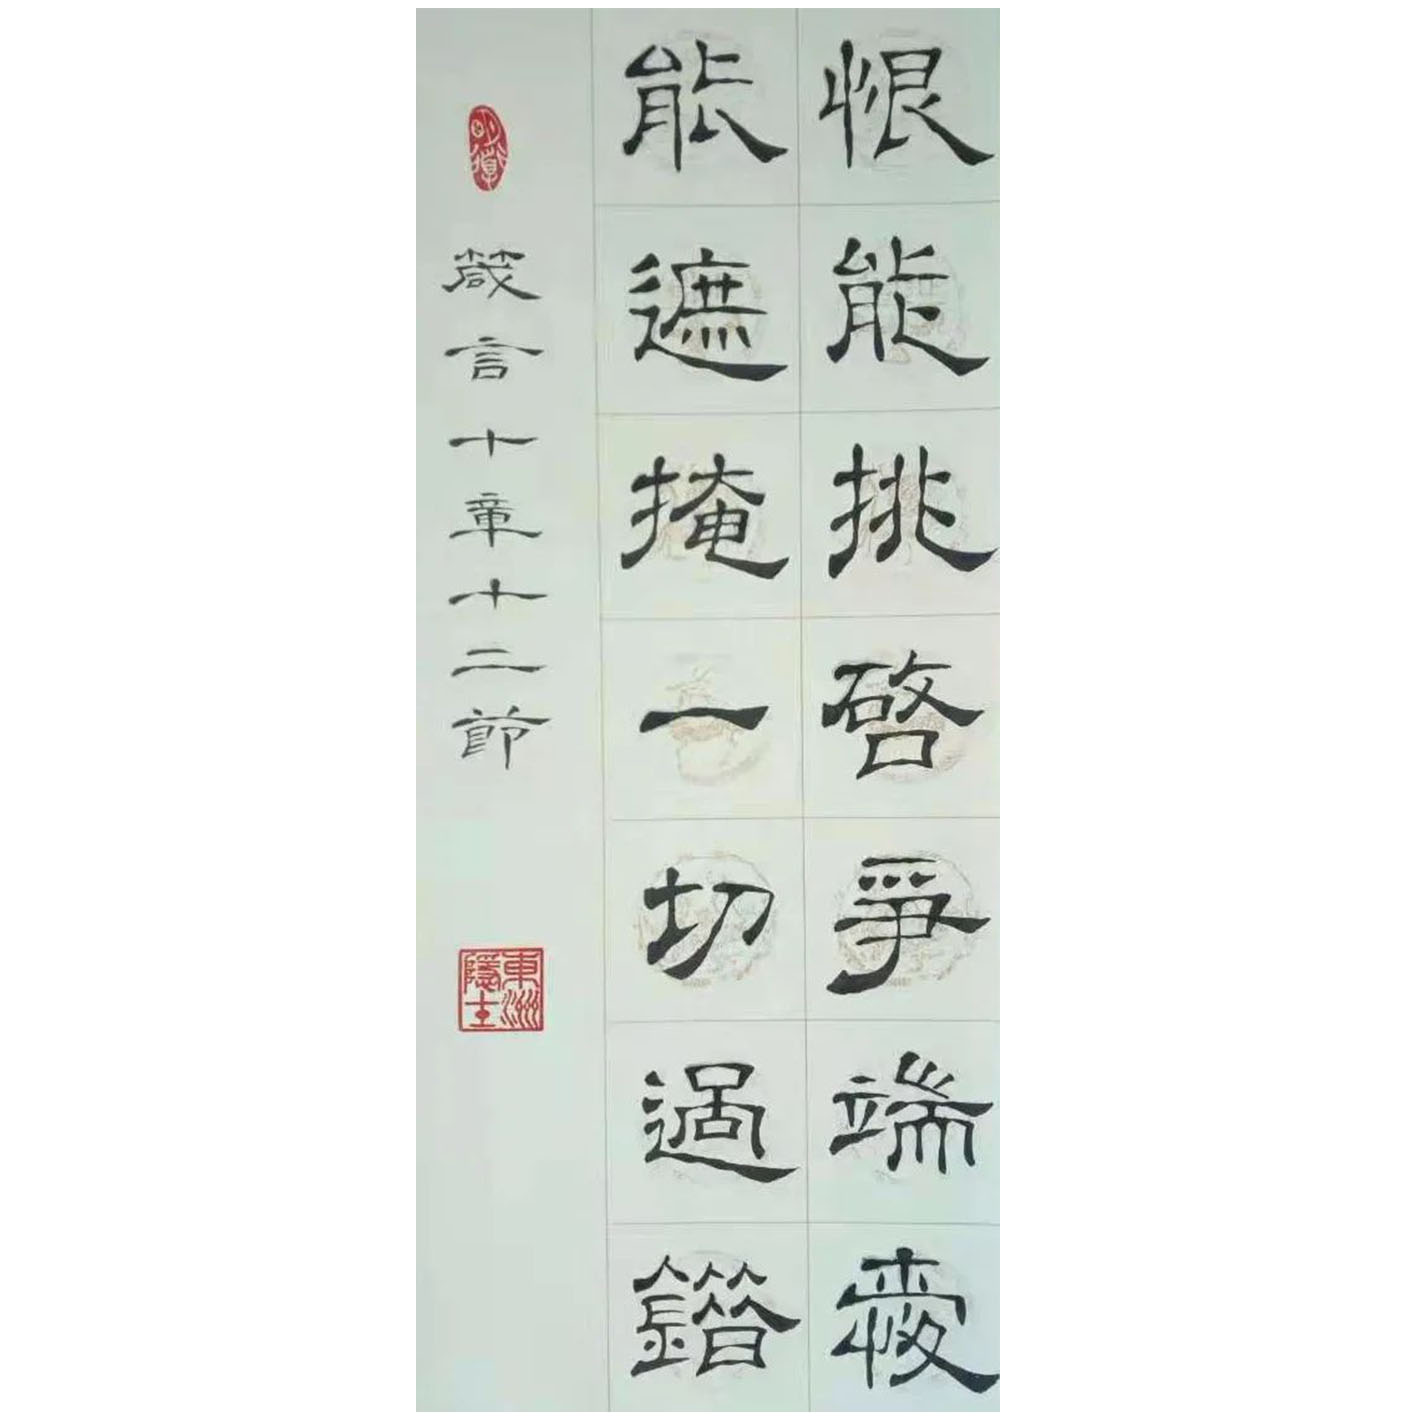 恨能挑啓爭端愛
能遮掩一切過錯
箴言十章十二節
東洲隱士